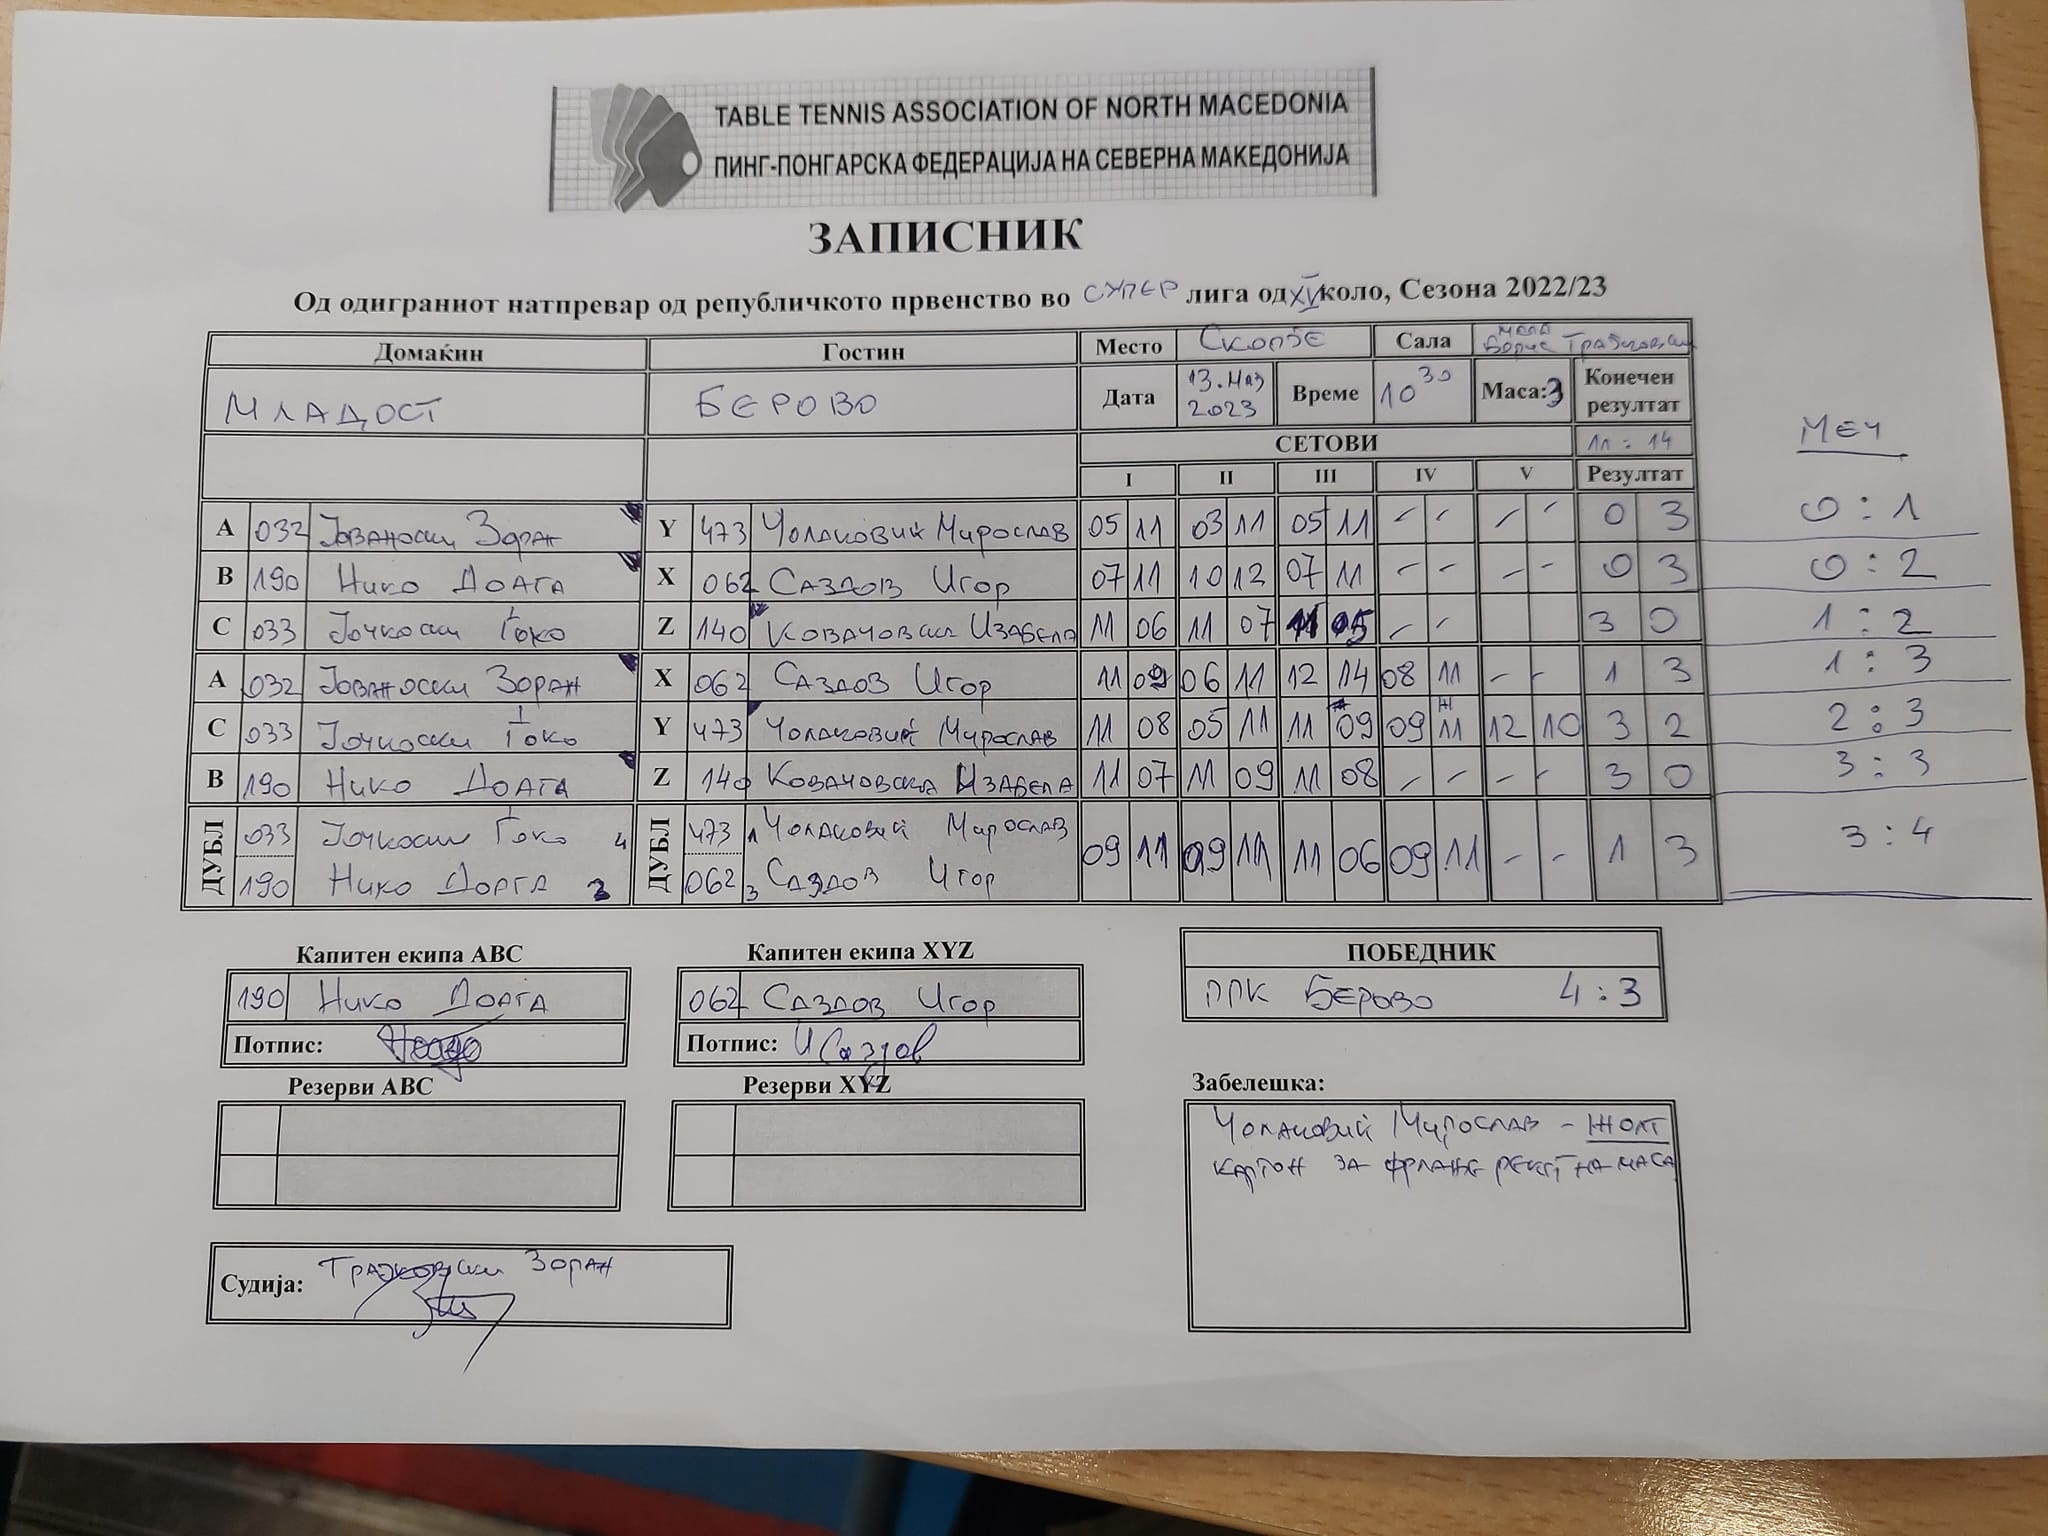 TABLE TENNIS ASSOCIATION OF NORTH MACEDONIA
ПИНГ-ПОНГАРСКА ФЕДЕРАЦИЈА НА СЕВЕРНА МАКЕДОНИЈА
ЗАПИСНИК
Од одиграниот натпревар од републичкото првенство во СУПЕР лига од XV коло, Сезона 2022/23
Домаќин Гостин Место СКОПЈЕ Сала МАЛА БОРИС ТРАЈКОВСКИ
МЛАДОСТ БЕРОВО Дата 13.МАЈ 2023 Време 10 30 Маса: 3 Конечен резултат
СЕТОВИ 11 : 14 МЕЧ
I II III IV V Резултат
A 032 ЈОВАНОСКИ ЗОРАН Y 473 ЧОЛАКОВИЌ МИРОСЛАВ 05 11 03 11 05 11 - - - - 0 3 0 : 1
B 190 НИКО ДОАГА X 062 САЗДОВ ИГОР 07 11 10 12 07 11 - - - - 0 3 0 : 2
C 033 ЈОЧКОСКИ ЃОКО Z 140 КОВАЧОВСКА ИЗАБЕЛА 11 06 11 07 11 05 - - 3 0 1 : 2
A 032 ЈОВАНОСКИ ЗОРАН X 062 САЗДОВ ИГОР 11 09 06 11 12 14 08 11 - - 1 3 1 : 3
C 033 ЈОЧКОСКИ ЃОКО Y 473 ЧОЛАКОВИЌ МИРОСЛАВ 11 08 05 11 11 09 09 Ж 11 12 10 3 2 2 : 3
B 190 НИКО ДОАГА Z 140 КОВАЧОВСКА ИЗАБЕЛА 11 07 11 09 11 08 - - - - 3 0 3 : 3
ДУБЛ 033 ЈОЧКОСКИ ЃОКО 4 ДУБЛ 473 1 ЧОЛАКОВИЌ МИРОСЛАВ 09 11 09 11 11 06 09 11 - - 1 3 3 : 4
190 НИКО ДОАГА 2 062 3 САЗДОВ ИГОР
Капитен екипа ABC Капитен екипа XYZ ПОБЕДНИК
190 НИКО ДОАГА 062 САЗДОВ ИГОР ППК БЕРОВО 4 : 3
Потпис: Потпис: И Саздов
Резерви ABC Резерви XYZ Забелешка:
ЧОЛАКОВИЌ МИРОСЛАВ - ЖОЛТ
КАРТОН ЗА ФРЛАЊЕ РЕКЕТ НА МАСА
Судија: ТРАЈКОВСКИ ЗОРАН